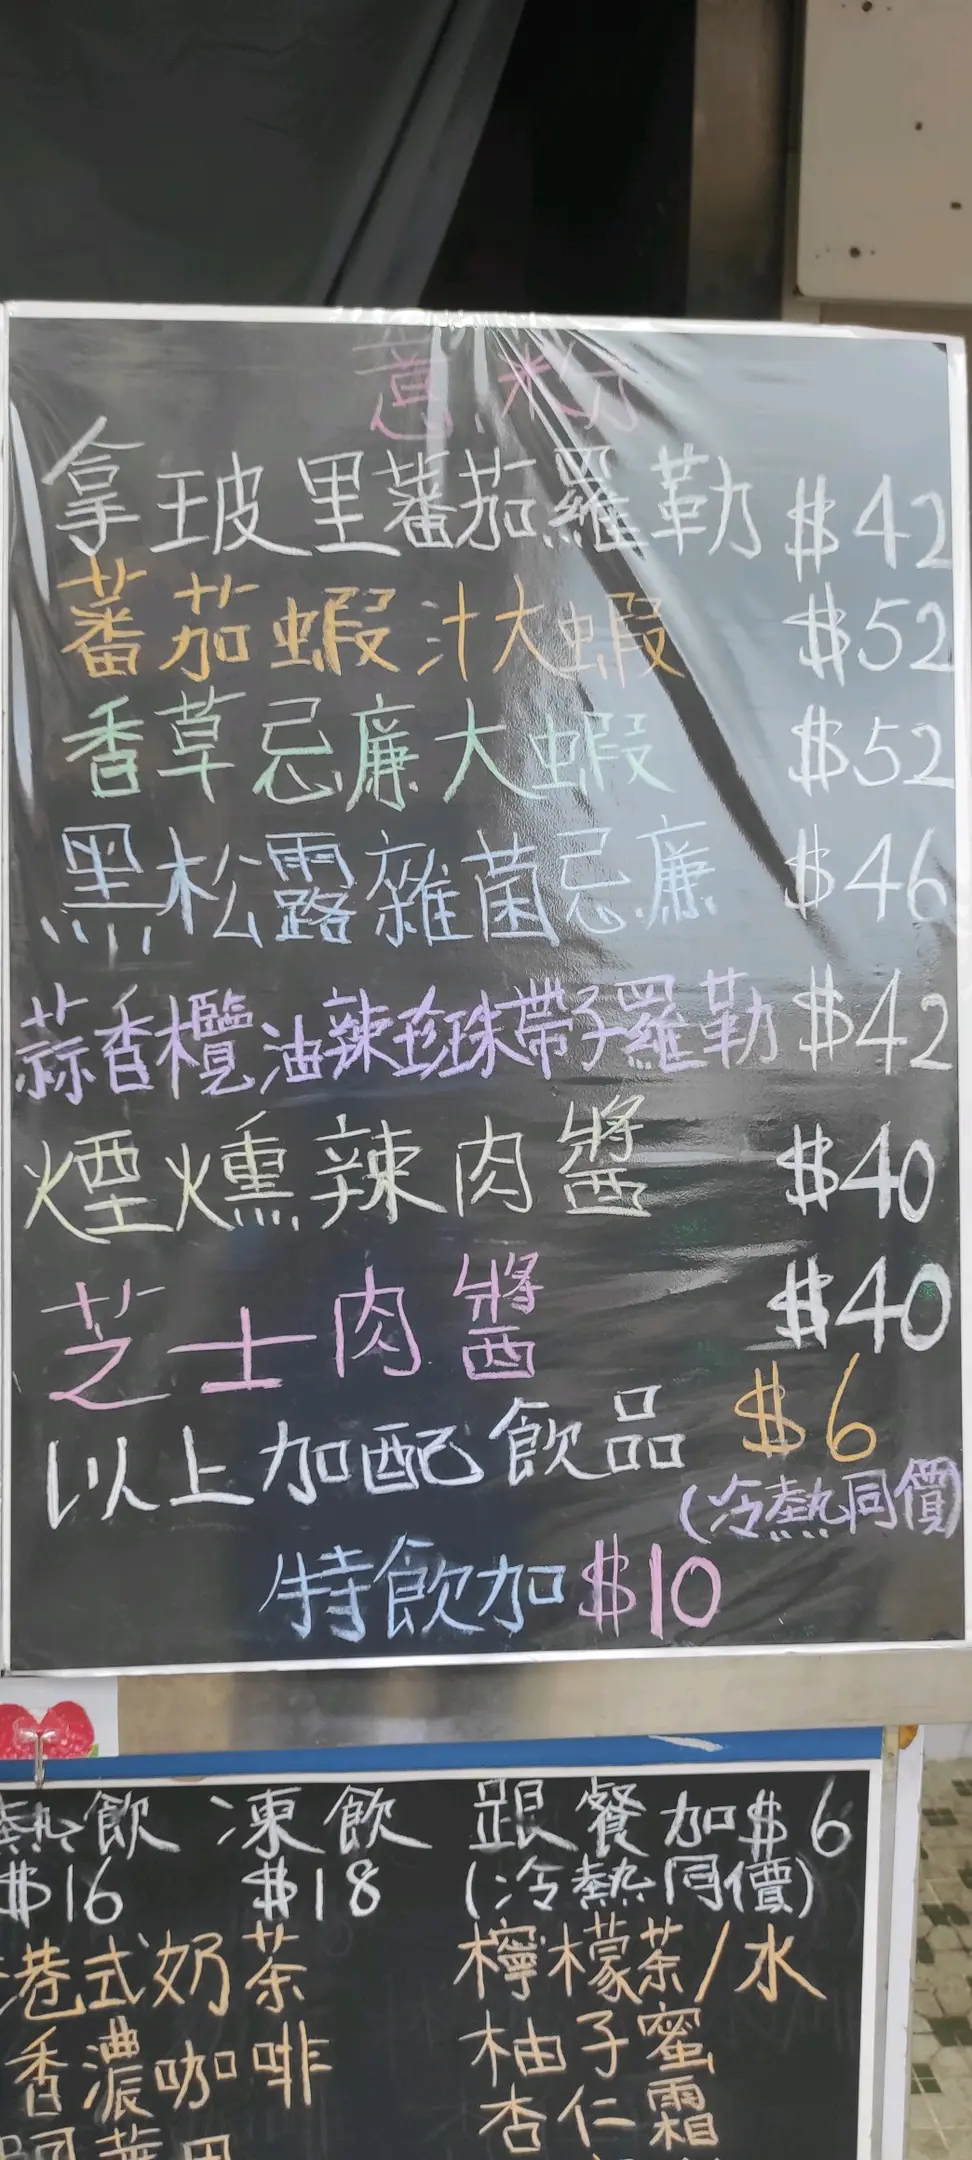 意粉
拿玻里蕃茄羅勒 $42
蕃茄蝦汁大蝦 $52
香草忌廉大蝦 $52
黑松露雜菌忌廉 $46
蒜香欖油辣珍珠帶子羅勒 $42
煙燻辣肉醬 $40
芝士肉醬 $40
以上加配飲品 $6
(冷熱同價)
特飲加 $10
熱飲 凍飲 跟餐加$6
$16 $18 (冷熱同價)
港式奶茶 檸檬茶/水
香濃咖啡 柚子蜜
杏仁霜